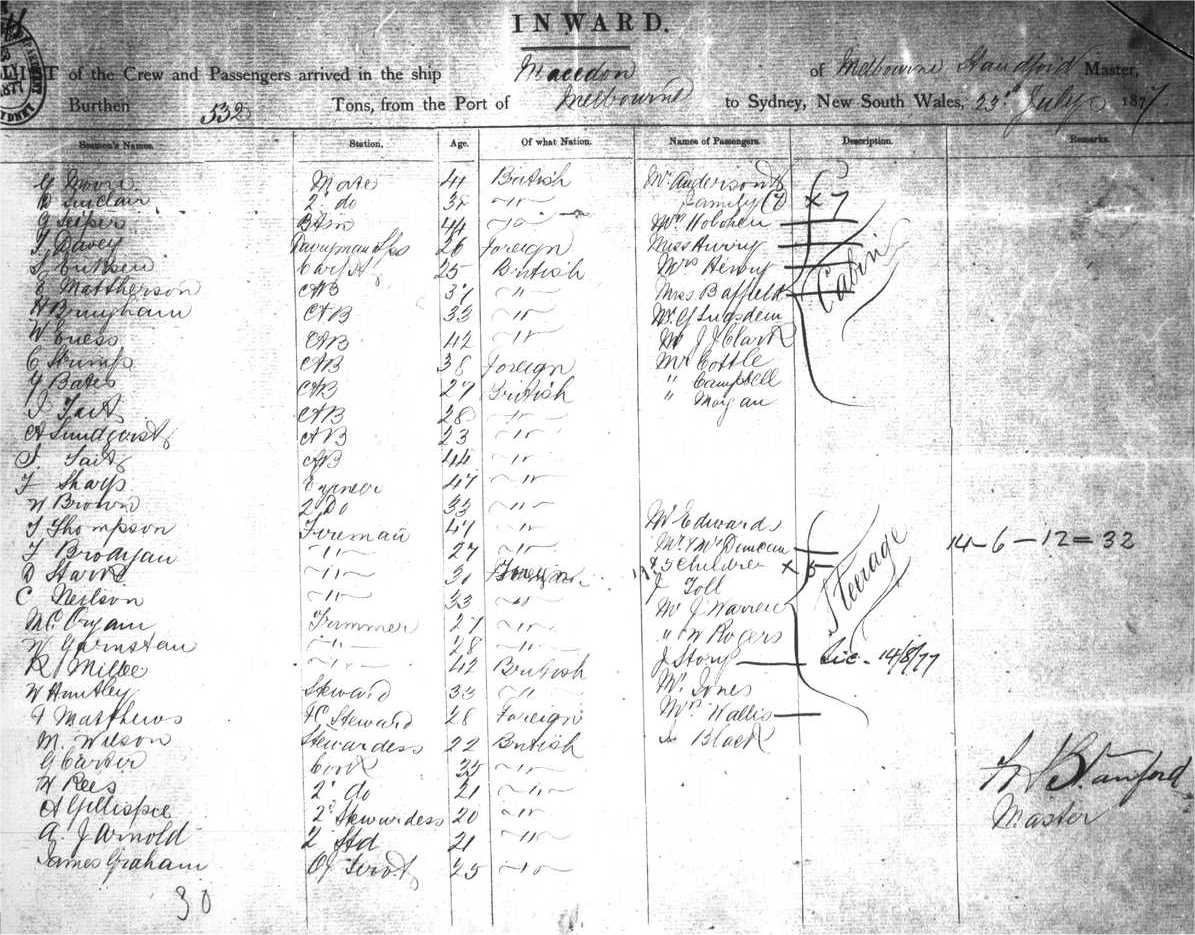 INWARD.
LIST of the Crew and Passengers arrived in the ship Macedon of Melbourne Standford Master,
Burthen 532 Tons, from the Port of Melbourne to Sydney, New South Wales, 23rd July 1877
Seamen's Names. Station. Age. Of what Nation. Names of Passengers. Description. Remarks.
G Moore Mate 41 British Mr Anderson &
D Sinclair 2d do 3 " Family (7) x 7
44 " Mrs Hobohen
J Davey Lps 26 Foreign Miss Avery
Eriksen 25 British Mrs Henry Cabin
Mattherson AB 37 " Miss Baffield
A Bringham AB 33 " Mr G Lugsden
W Guess AB 42 " Mr J J Clark
C Strump AB 38 Foreign Mr Cottle
G Bates AB 27 British " Campbell
Tait AB 28 " " Morgan
A Sundqvist AB 23 "
J. Tait AB 44 "
Sharp 47 "
W Brown 2 Do 33 "
T Thompson Foreman 47 " Mr Edwards
T Brodgan " 27 " Mr & Mrs Duncan 14-6-12=32
D Starr " 3 Foreign & 5 Children x 5 Steerage
C. Neilson " 33 " J Toll
Mc Trimmer 27 " Mr J Warren
W Garnstan " 28 " " W Rogers
R Millee " 42 British J Story Lic - 14/8/77
W Huntley Steward 33 " Mr Jones
F Matthews FC Steward 28 Foreign Mrs Wallis
M. Wilson Stewardess 22 British Black
G Carter Cook 35 "
H Rees 2d do 21 "
A Gillispie 2d Stewardess 20 "
A. J Arnold 2 Std 21 "
James Graham 25 "
30
Stanford
Master